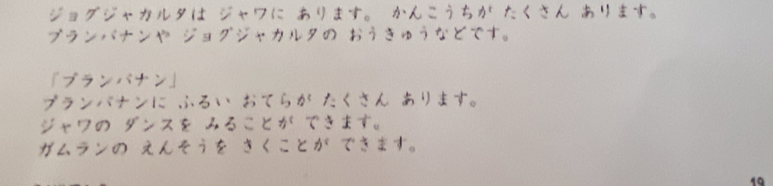 ジョグジャカルタは ジャワに あります。 かんこうちが たくさん あります。
プランバナンや ジョグジャカルタの おうきゅうなどです。
「プランバナン」
プランバナンに ふるい おてらが たくさん あります。
ジャワの ダンスを みることが できます。
ガムランの えんそうを きくことが できます。
19